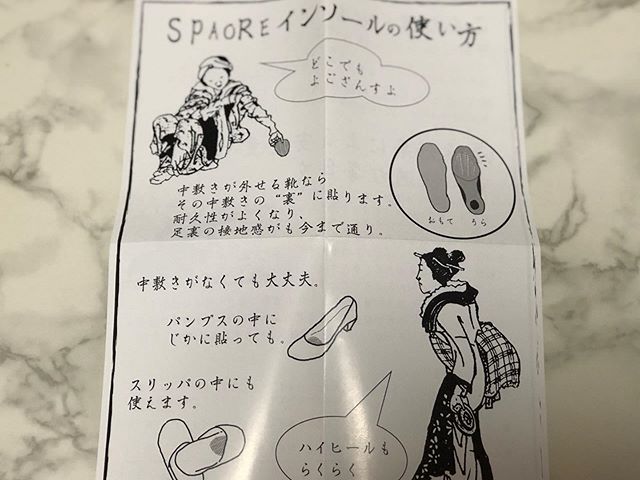 SPAOREインソールの使い方
どこでも
よござんすよ
中敷きが外せる靴なら
その中敷きの"裏"に貼ります。
耐久性がよくなり、
足裏の接地感がも今まで通り。
おもて うら
中敷きがなくても大丈夫。
パンプスの中に
じかに貼っても。
スリッパの中にも
使えます。
ハイヒールも
らくらく